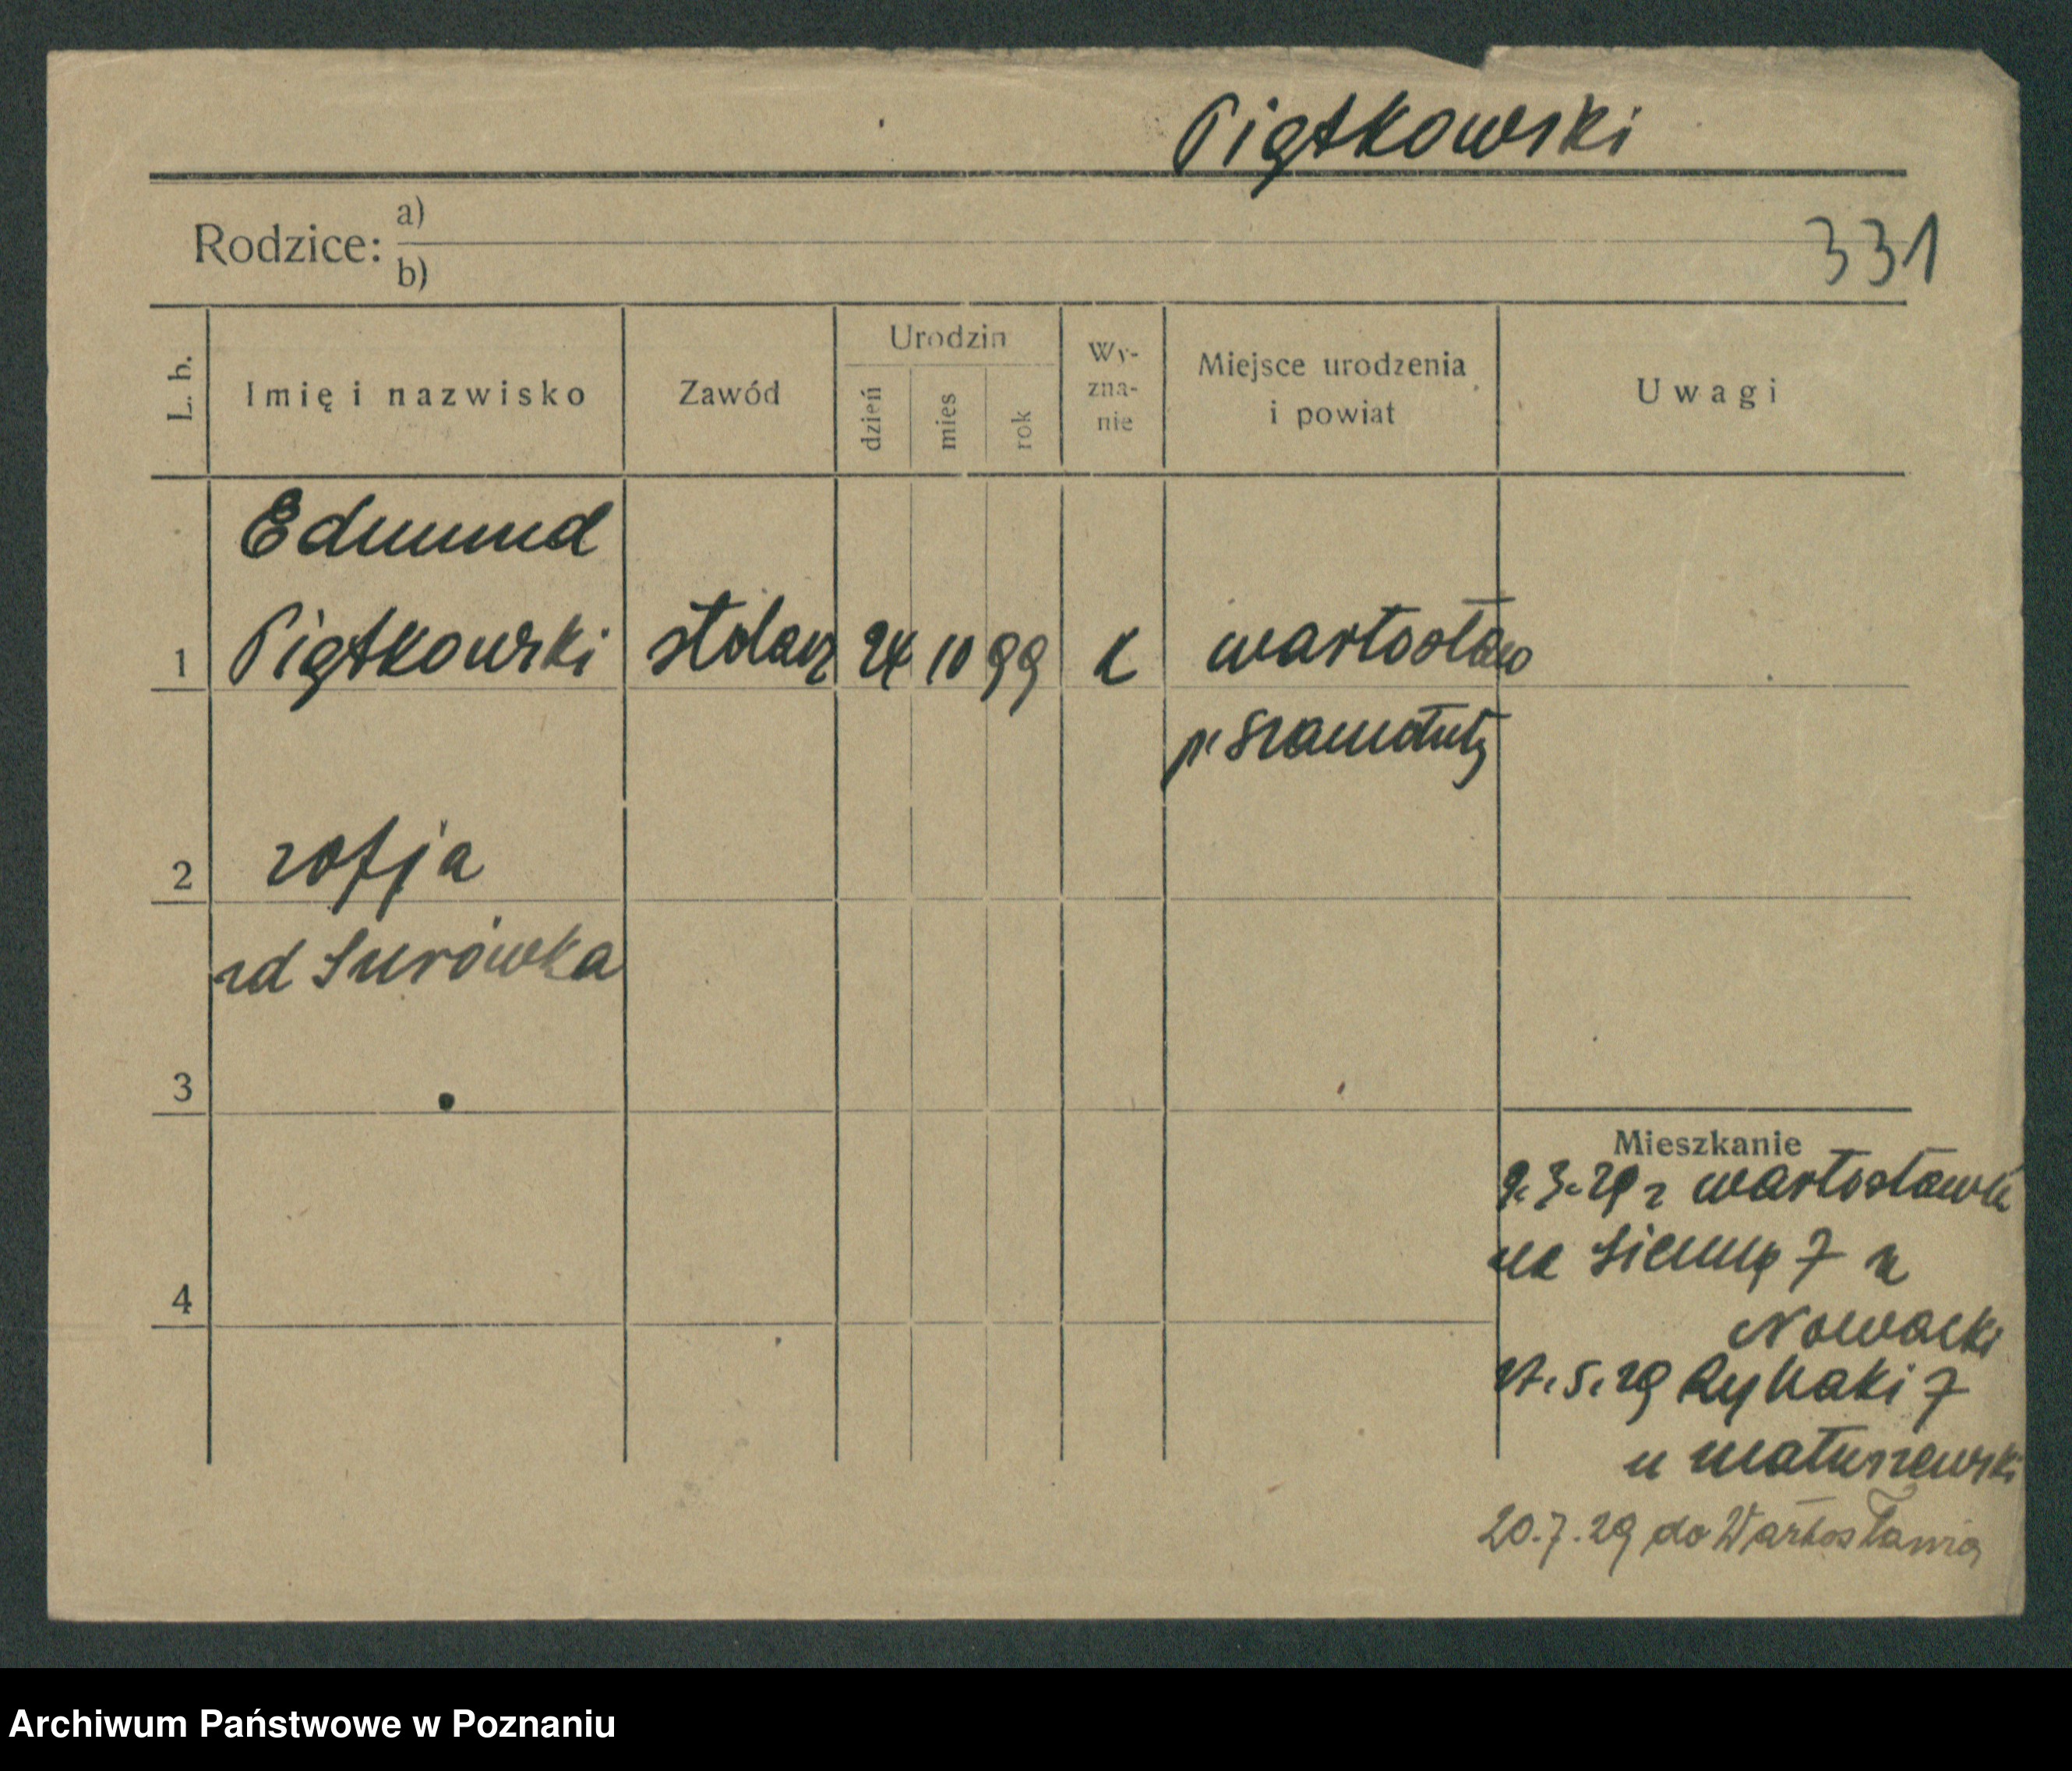 Piątkowski
Rodzice: a)
b)
331
L. b.
Imię i nazwisko
Zawód
Urodzin
dzień
mies
rok
Wy-
zna-
nie
Miejsce urodzenia
i powiat
Uwagi
Edmund
1 Piątkowski stolarz 24 10 99 k wartosław
p. Szamotuły
2 zofja
zd Surówka
3
Mieszkanie
9.3.29 z wartosławia
na Sienną 7 u
4
Nowacki
.5.29 Rybaki 7
u matuszewski
20.7.29 do Wartosławia
Archiwum Państwowe w Poznaniu